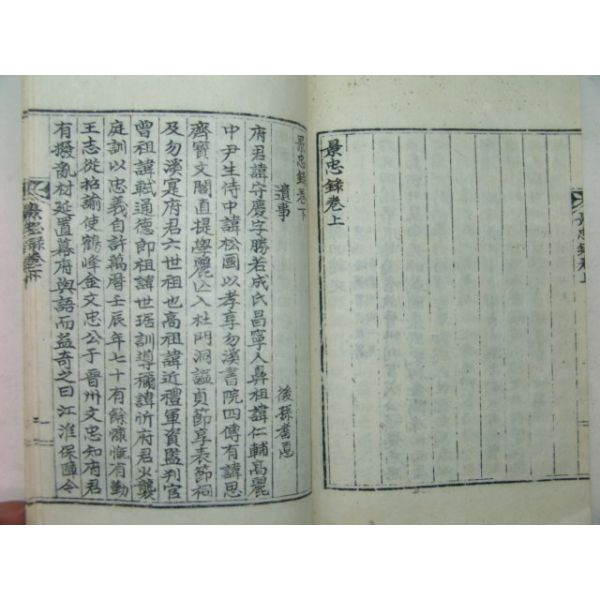 景忠錄卷上
景忠錄卷上
景忠錄卷下
遺事
後孫耆悳
府君諱守慶字勝若成氏昌寧人鼻祖諱仁輔高麗
中尹生侍中諱松國以孝享勿溪書院四傳有諱思
齊寶文閣直提學麗亡入杜門洞謚貞節享表節祠
及勿溪寔府君六世祖也高祖諱近禮軍資監判官
曾祖諱軾通德郎祖諱世琚訓導禰諱忻府君少襲
庭訓以忠義自許萬曆壬辰年七十有餘慷慨有勤
王志從招諭使鶴峰金文忠公于晋州文忠知府君
有撥亂材延置幕府與語而益奇之曰江淮保障令
景忠錄卷下
一